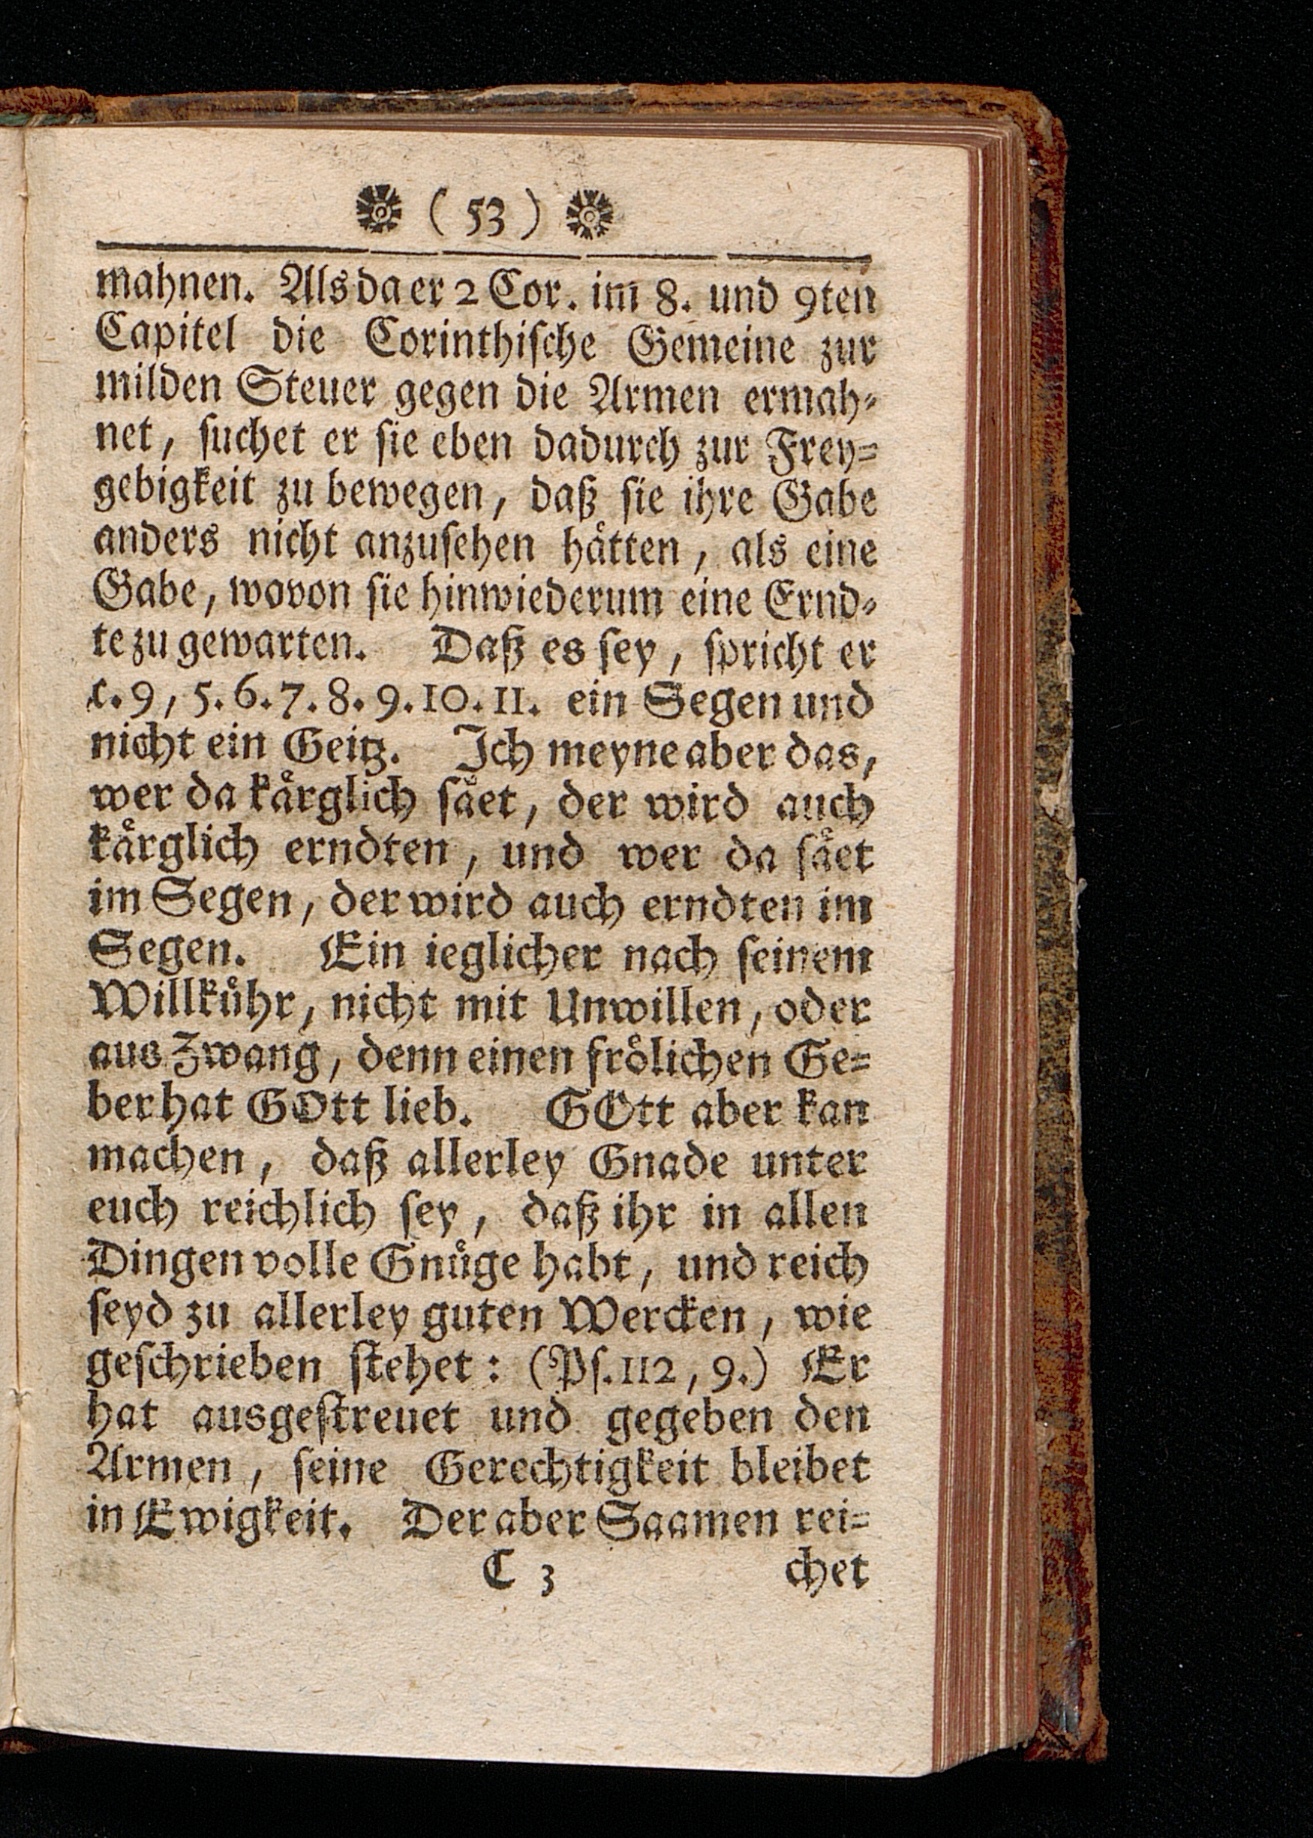 ( 53 )
mahnen. Als da er 2 Cor. im 8. und 9ten
Capitel die Corinthische Gemeine zur
milden Steuer gegen die Armen ermah-
net, suchet er sie eben dadurch zur Frey-
gebigkeit zu bewegen, daß sie ihre Gabe
anders nicht anzusehen håtten, als eine
Gabe, wovon sie hinwiederum eine Ernd-
te zu gewarten. Daß es sey, spricht er
c. 9, 5. 6. 7. 8. 9. 10. 11. ein Segen und
nicht ein Geitz. Ich meyne aber das,
wer da kårglich sået, der wird auch
kårglich erndten, und wer da sået
im Segen, der wird auch erndten im
Segen. Ein ieglicher nach seinem
Willkůhr, nicht mit Unwillen, oder
aus Zwang, denn einen frölichen Ge-
ber hat GOtt lieb. GOtt aber kan
machen, daß allerley Gnade unter
euch reichlich sey, daß ihr in allen
Dingen volle Gnůge habt, und reich
seyd zu allerley guten Wercken, wie
geschrieben stehet: (Ps. 112, 9.) Er
hat ausgestreuet und gegeben den
Armen, seine Gerechtigkeit bleibet
in Ewigkeit. Der aber Saamen rei-
C 3 chet